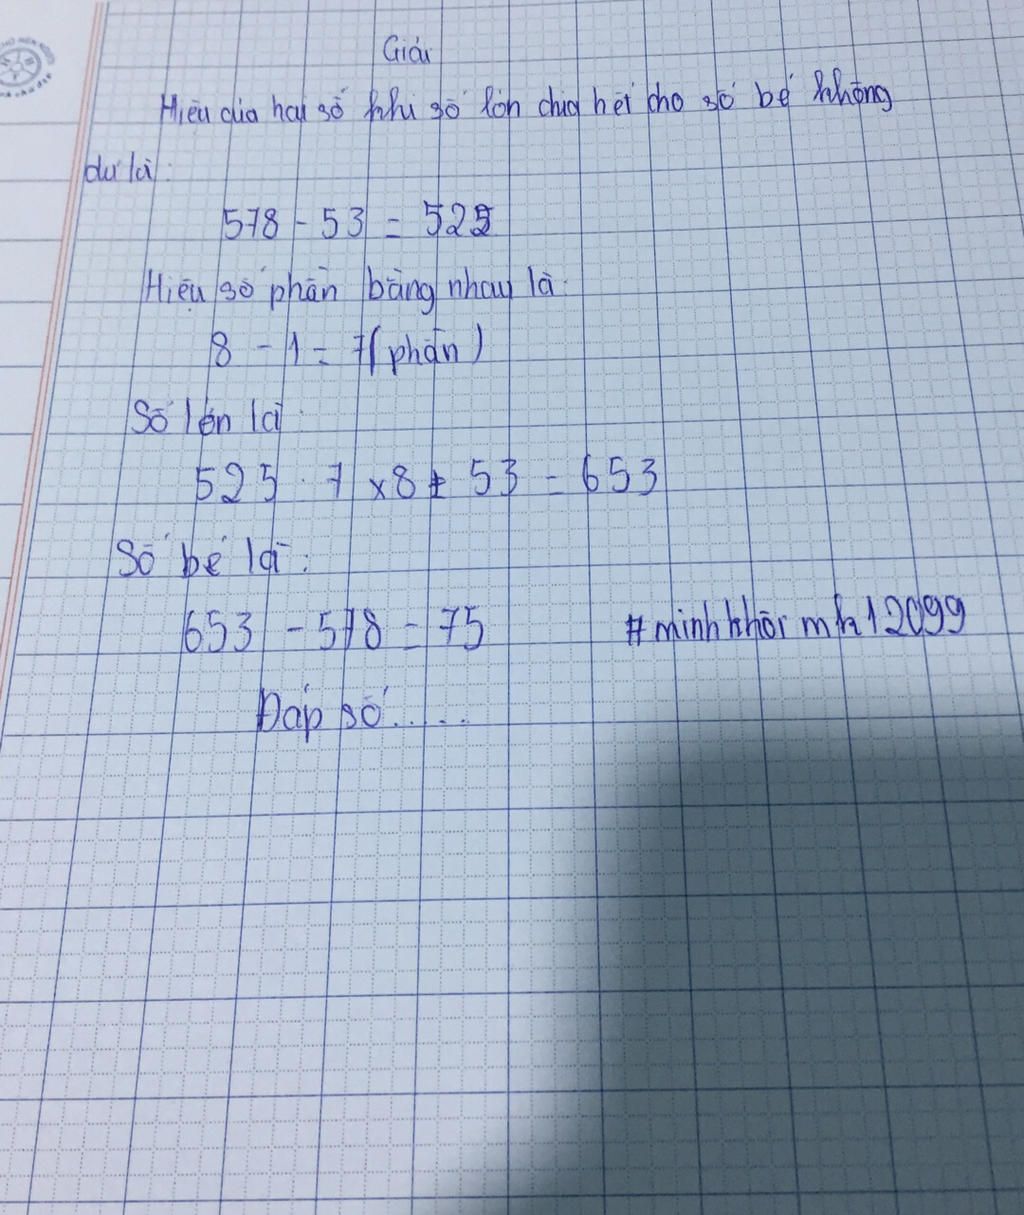 Giải
Hiệu của hai số khi số lớn chia hết cho số bé không
dư là:
578 - 53 = 525
Hiệu số phần bằng nhau là:
8 - 1 = 7 (phần)
Số lớn là:
525 : 7 x 8 + 53 = 653
Số bé là:
653 - 578 = 75
#minhkhôi mk12099
Đáp số.....